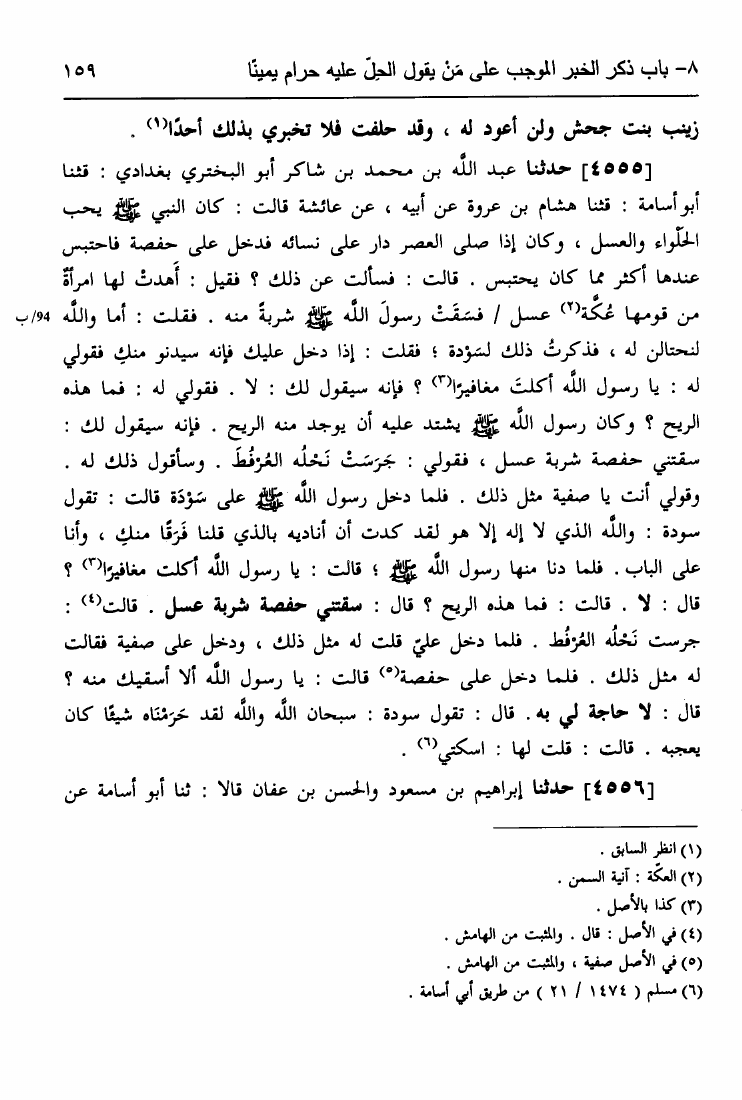 ٨- باب ذكر الخبر الموجب على مَنْ يقول الحِلّ عليه حرام يمينًا ١٥٩
زينب بنت جحش ولن أعود له ، وقد حلفت فلا تخبري بذلك أحدًا(١) .
[٤٥٥٥] حدثنا عبد اللَّه بن محمد بن شاكر أبو البختري بغدادي : قثنا
أبو أسامة : قثنا هشام بن عروة عن أبيه ، عن عائشة قالت : كان النبي ﷺ يحب
الحَلْواء والعسل ، وكان إذا صلى العصر دار على نسائه فدخل على حفصة فاحتبس
عندها أكثر مما كان يحتبس . قالت : فسألت عن ذلك ؟ فقيل : أَهدتْ لها امرأةٌ
من قومها عُكَّة(٢) عسل / فسَقَتْ رسولَ اللَّه ﷺ شربةً منه . فقلت : أما واللَّه 94/ب
لنحتالن له ، فذكرتُ ذلك لسَوْدة ؛ فقلت : إذا دخل عليك فإنه سيدنو منكِ فقولي
له : يا رسول اللَّه أكلتَ مغافيرًا(٣) ؟ فإنه سيقول لك : لا . فقولي له : فما هذه
الريح ؟ وكان رسول اللَّه ﷺ يشتد عليه أن يوجد منه الريح . فإنه سيقول لك :
سقتني حفصة شربة عسل ، فقولي : جَرَسَتْ نَحْلُه العُرْفُطَ . وسأقول ذلك له .
وقولي أنت يا صفية مثل ذلك . فلما دخل رسول اللَّه ﷺ على سَوْدَة قالت : تقول
سودة : واللَّه الذي لا إله إلا هو لقد كدت أن أناديه بالذي قلنا فَرَقًا منكِ ، وأنا
على الباب . فلما دنا منها رسول اللَّه ﷺ ؛ قالت : يا رسول اللَّه أكلت مغافيرًا(٣) ؟
قال : لا . قالت : فما هذه الريح ؟ قال : سقتني حفصة شربة عسل . قالت(٤) :
جرست نَحْلُه العُرْفُط . فلما دخل عليّ قلت له مثل ذلك ، ودخل على صفية فقالت
له مثل ذلك . فلما دخل على حفصة(٥) قالت : يا رسول اللَّه ألا أسقيك منه ؟
قال : لا حاجة لي به . قال : تقول سودة : سبحان اللَّه واللَّه لقد حَرَمْنَاه شيئًا كان
يعجبه . قالت : قلت لها : اسكتي(٦) .
[٤٥٥٦] حدثنا إبراهيم بن مسعود والحسن بن عفان قالا : ثنا أبو أسامة عن
(١) انظر السابق .
(٢) العكّة : آنية السمن .
(٣) كذا بالأصل .
(٤) في الأصل : قال . والمثبت من الهامش .
(٥) في الأصل صفية ، والمثبت من الهامش .
(٦) مسلم ( ١٤٧٤ / ٢١ ) من طريق أبي أسامة .